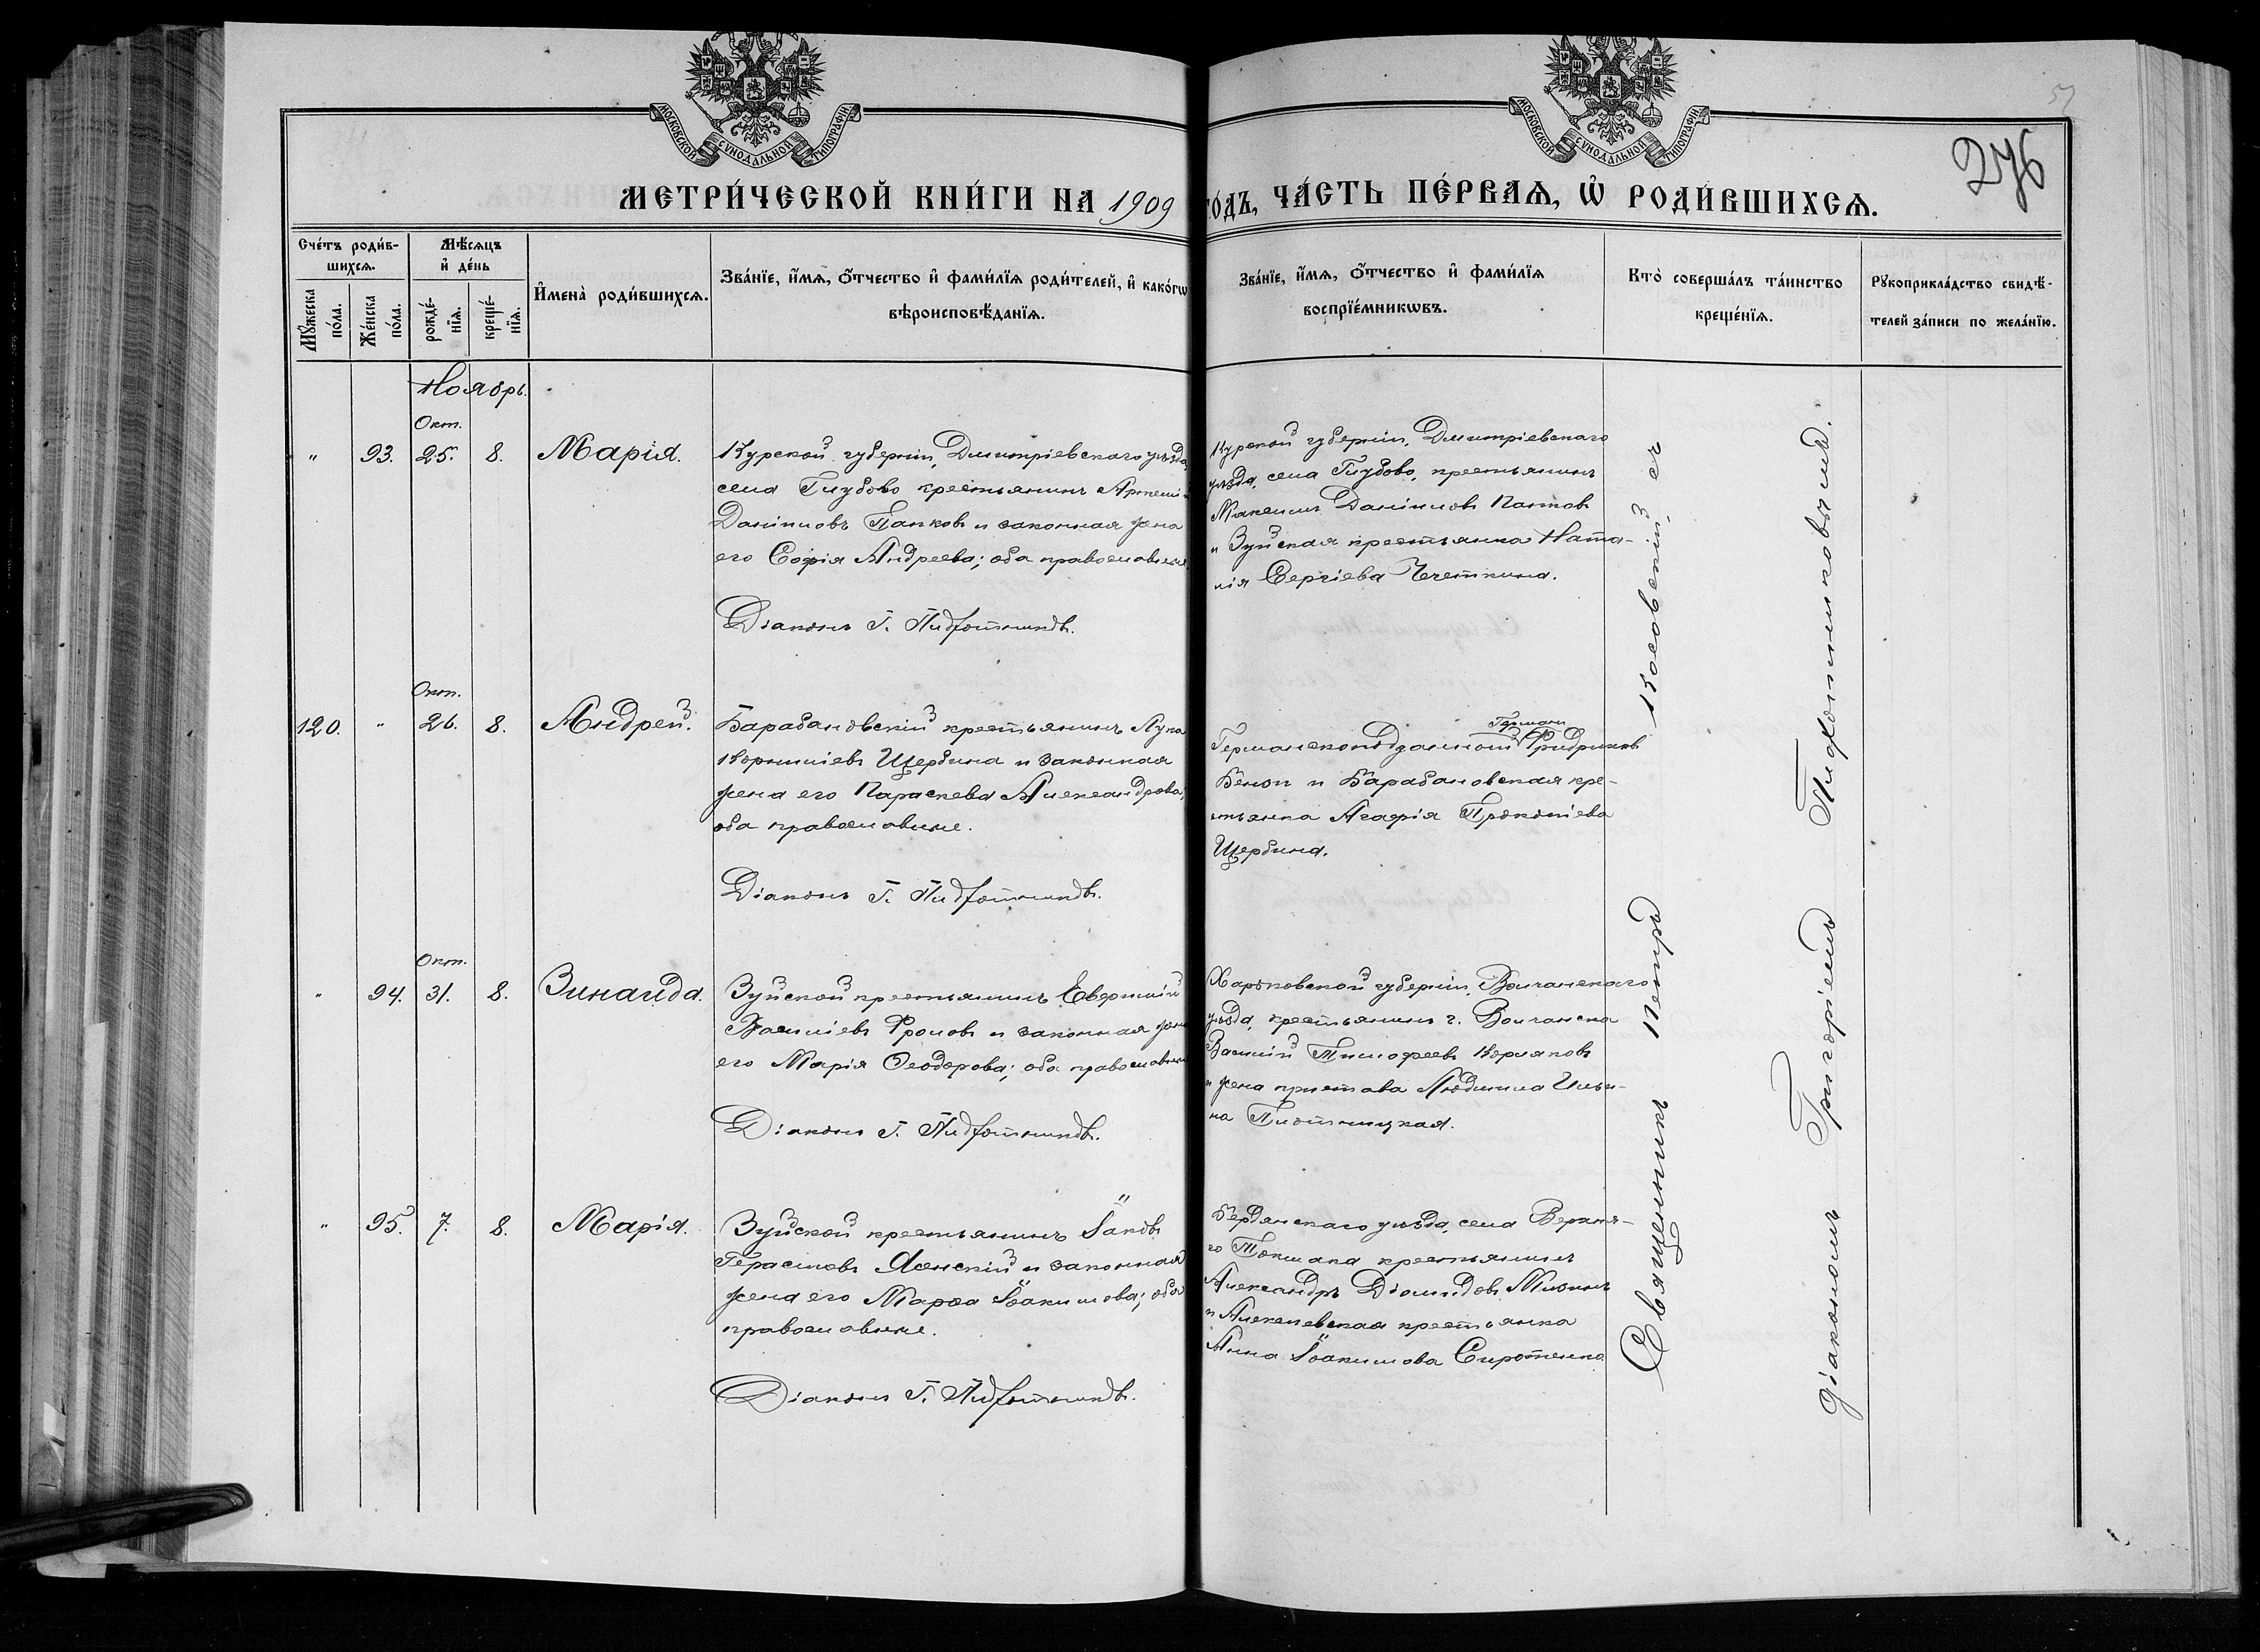 МОСКОВСКОЙ СУНОДАЛЬНОЙ ТИПОГРАФІИ
МОСКОВСКОЙ СУНОДАЛЬНОЙ ТИПОГРАФІИ
276
МЕТРИ́ЧЕСКОЙ КНИ́ГИ НА 1909 ГО́ДЪ, ЧА́СТЬ ПЕ́РВАѦ, Ѡ҆ РОДИ́ВШИХСѦ.
Сче́тъ роди́в-
шихсѧ.
Мꙋ́жеска по́ла.
Же́нска по́ла.
Мѣ́сѧцъ и҆ де́нь
рожде́-нїѧ.
креще́-нїѧ.
И҆мена̀ роди́вшихсѧ.
Зва́нїе, и҆́мѧ, ѻ҆́тчество и҆ фами́лїѧ роди́телей, и҆ како́гѡ
вѣроисповѣ́данїѧ.
Зва́нїе, и҆́мѧ, ѻ҆́тчество и҆ фами́лїѧ
воспрїе́мникѡвъ.
Кто̀ соверша́лъ та́инство
креще́нїѧ.
Рꙋкоприкла́дство свидѣ́-
телей за́писи по жела́нїю.
Ноябрь.
Окт.
" 93. 25. 8. Марія.
Курской губерніи, Дмитріевскаго уѣзда,
села Глубово крестьянинъ Артемій
Даніиловъ Папковъ и законная жена
его Софія Андреева; оба православные.
Діаконъ Г. Пидфотниковъ.
Курской губерніи, Дмитріевскаго
уѣзда, села Глубово, крестьянинъ
Максимъ Даніиловъ Папковъ
и Зуйская крестьянка Ната-
лія Сергіева Чечеткина.
Окт.
120. " 26. 8. Андрей.
Барабановскій крестьянинъ Лука
Корниліевъ Щербина и законная
жена его Параскева Александрова,
оба православные.
Діаконъ Г. Пидфотниковъ.
Германъ
Германскоподданный Фридриховъ
и Барабановская кре-
стьянка Агафія Прокопіева
Щербина.
Окт.
" 94. 31. 8. Зинаида.
Зуйской крестьянинъ Евѳимій
Василіевъ Фроловъ и законная жена
его Марія Ѳеодорова; оба православные
Діаконъ Г. Пидфотниковъ.
Харьковской губерніи, Волчанскаго
уѣзда, крестьянинъ г. Волчанска
Василій Тимофеевъ Корляковъ
и жена пристава Людмила Ильи-
на Плотницкая.
" 95. 7. 8. Марія.
Зуйской крестьянинъ Іаковъ
Герасимовъ Ясенскій и законная
жена его Марѳа Іоакимова; оба
православные.
Діаконъ Г. Пидфотниковъ.
Бердянскаго уѣзда, села Верхня-
го Токмака крестьянинъ
Александръ Діомидовъ
и Алексѣевская крестьянка
Анна Іоакимова Сиротенко.
Священникъ Петръ Косовскій, съ
діакономъ Григоріемъ Пидфотниковымъ.